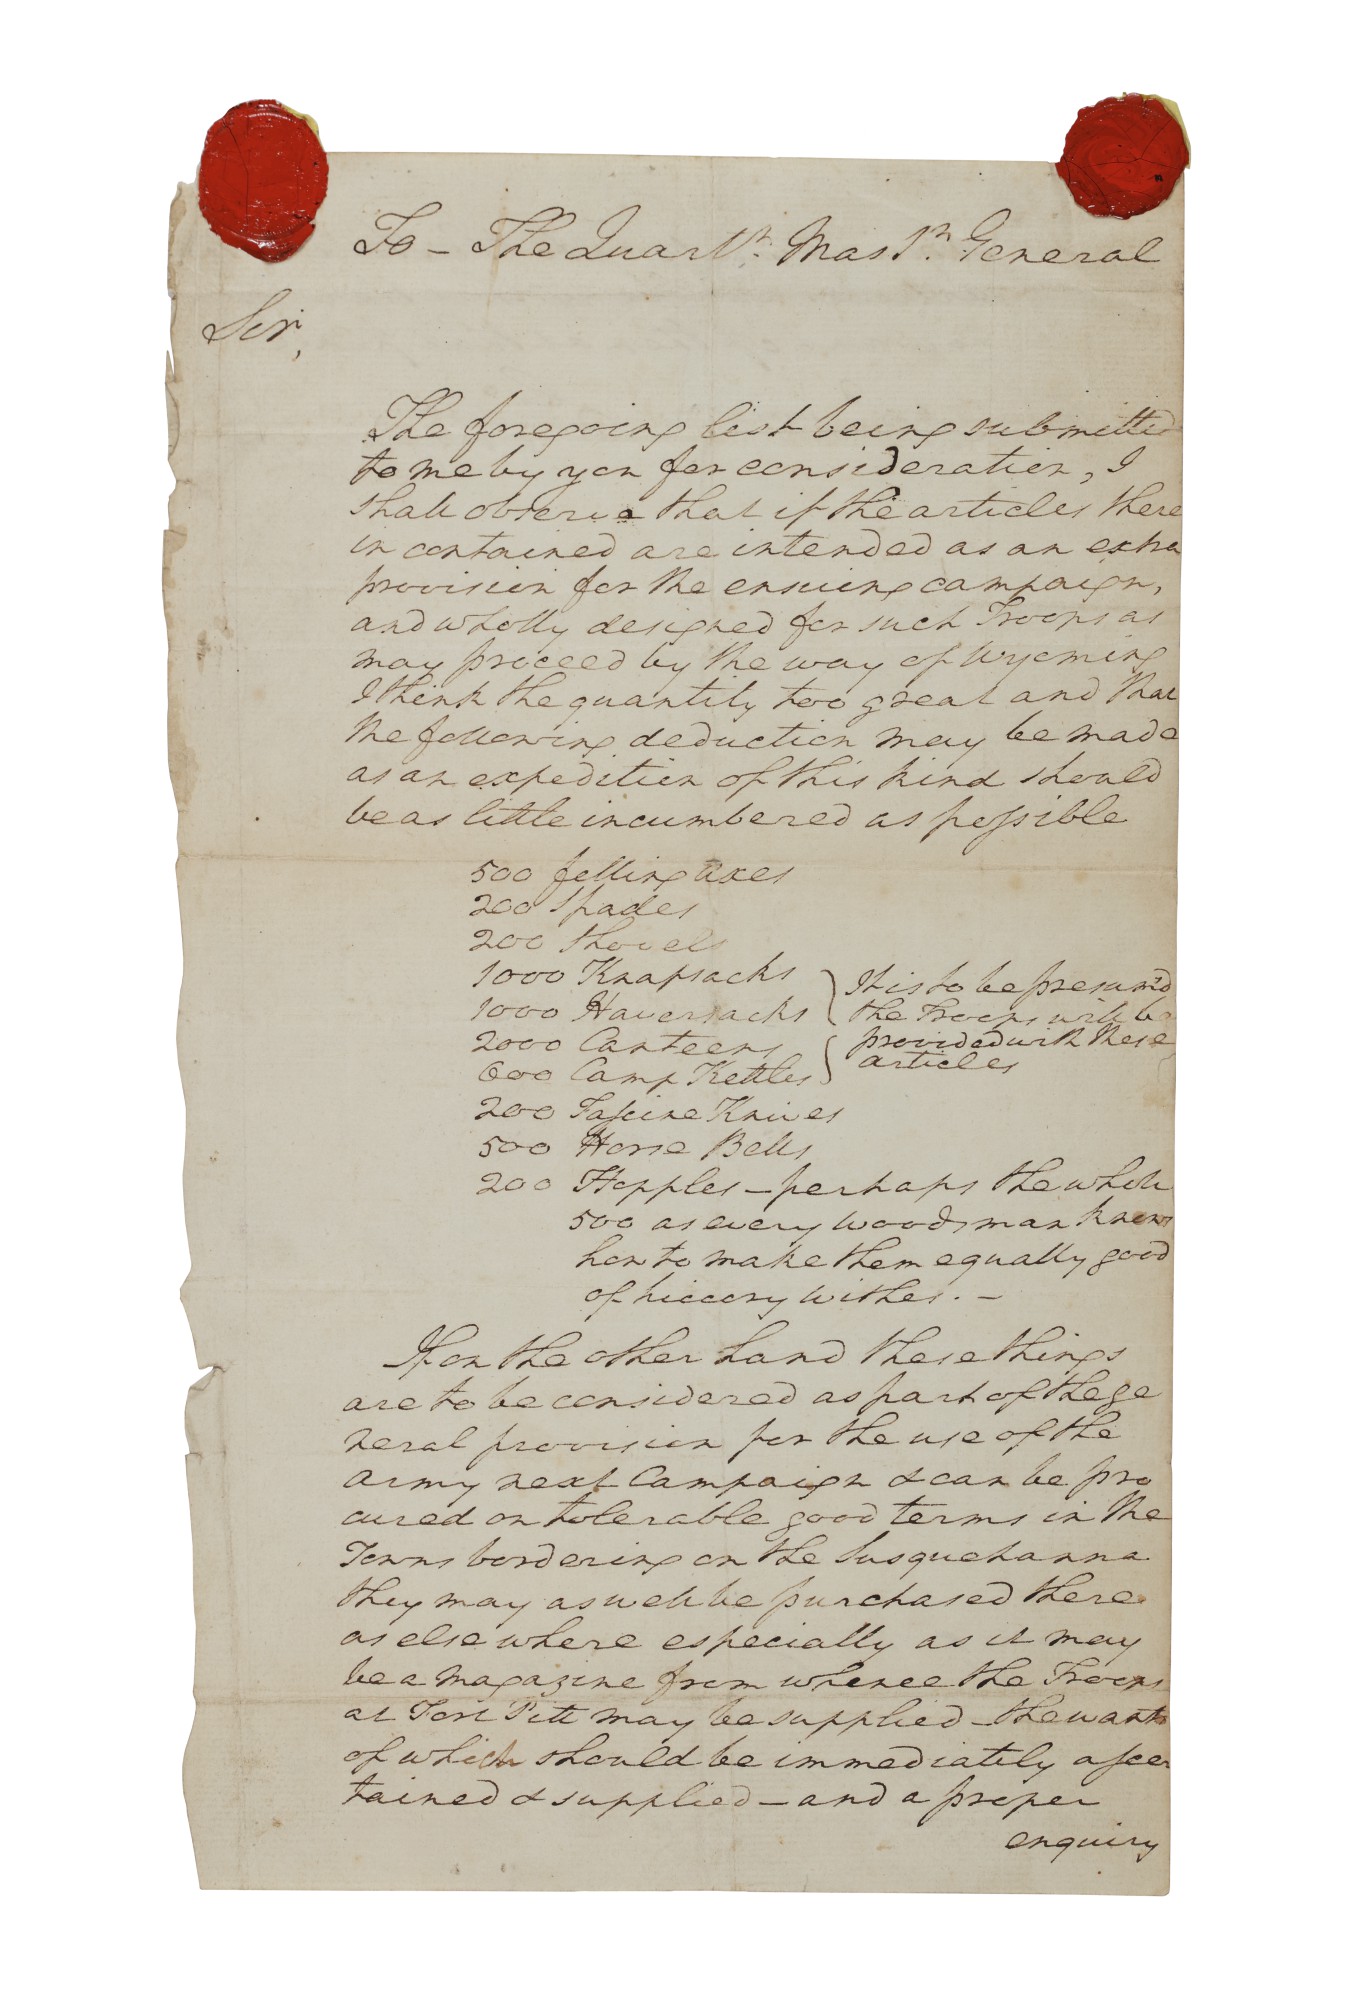 To – The Quartr. Mastr. General
Sir,
The foregoing list being submitted
to me by you for consideration, I
shall observe that if the articles there
in contained are intended as an extra
provision for the ensuing campaign,
and wholly designed for such Troops as
may proceed by the way of Wyoming
I think the quantity too great and that
the following deduction may be made
as an expedition of this kind should
be as little incumbered as possible
500 felling axes
200 Spades
200 shovels
1000 Knapsacks
1000 Haversacks
2000 Canteens
600 Camp Kettles
It is to be presum'd
the Troops will be
provided with these
articles
200 Fascine Knives
500 Horse Bells
200 Hopples – perhaps the whole
500 as every woodsman knows
how to make them equally good
of hiccory withes. –
If on the other hand these things
are to be considered as part of the ge
neral provision for the use of the
army next Campaign & can be pro
cured on tolerable good terms in the
Towns bordering on the Susquehanna
they may as well be purchased there
as else where especially as it may
be a magazine from whence the Troops
at Fort Pitt may be supplied – the wants
of which should be immediately ascer
tained & supplied – and a proper
enquiry